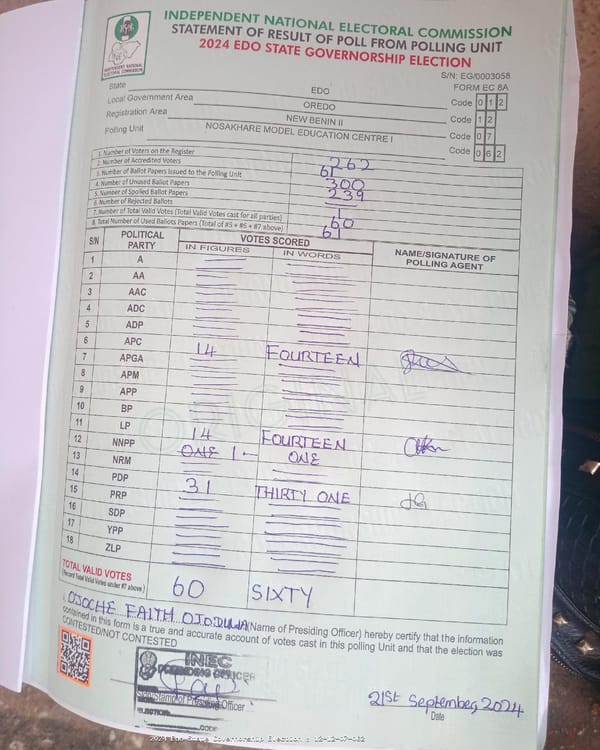 INDEPENDENT NATIONAL ELECTORAL COMMISSION
STATEMENT OF RESULT OF POLL FROM POLLING UNIT
2024 EDO STATE GOVERNORSHIP ELECTION
INDEPENDENT NATIONAL ELECTORAL COMMISSION
S/N: EG/0003058
FORM EC 8A
State EDO
Local Government Area OREDO Code 0 1 2
Registration Area NEW BENIN II Code 1 2
Polling Unit NOSAKHARE MODEL EDUCATION CENTRE I Code 0 7
Code 0 6 2
1. Number of Voters on the Register 262
2. Number of Accredited Voters 61
3. Number of Ballot Papers Issued to the Polling Unit 300
4. Number of Unused Ballot Papers 239
5. Number of Spoiled Ballot Papers
6. Number of Rejected Ballots 1
7. Number of Total Valid Votes (Total Valid Votes cast for all parties) 60
8. Total Number of Used Ballots Papers (Total of #5 + #6 + #7 above) 61
S/N POLITICAL PARTY VOTES SCORED NAME/SIGNATURE OF POLLING AGENT
IN FIGURES IN WORDS
1 A
2 AA
3 AAC
4 ADC
5 ADP
6 APC 14 FOURTEEN
7 APGA
8 APM
9 APP
10 BP
11 LP 14 FOURTEEN
12 NNPP ONE 1 ONE
13 NRM
14 PDP 31 THIRTY ONE
15 PRP
16 SDP
17 YPP
18 ZLP
TOTAL VALID VOTES 60 SIXTY
(Record Total Valid Votes under #7 above)
I, OJOCHE FAITH (Name of Presiding Officer) hereby certify that the information
contained in this form is a true and accurate account of votes cast in this polling Unit and that the election was
CONTESTED/NOT CONTESTED
INEC
PRESIDING OFFICER
Sign/Stamp of Presiding Officer
ELECTION:
CODE
21st September, 2024
Date
2024 Edo State Governorship Election : 12-12-07-062